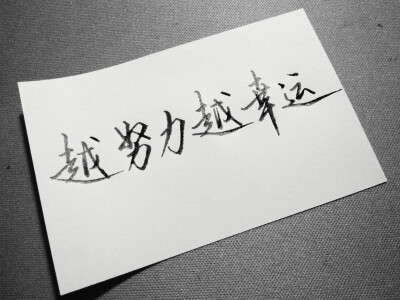 越努力越幸运